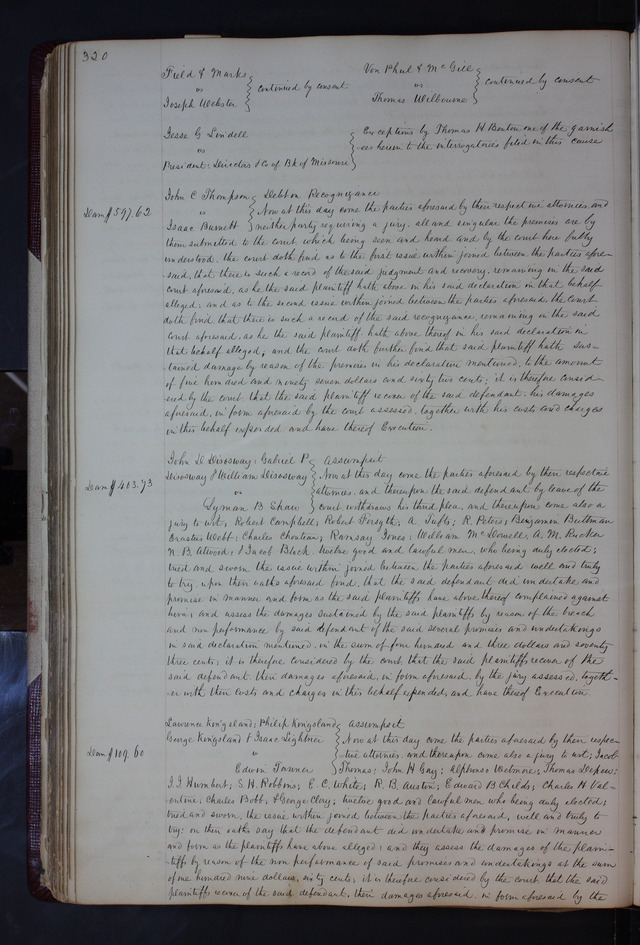 320
Field & Marks
vs } continued by consent
Joseph Webster
Von Phul & McGill
vs } continued by consent
Thomas Wilbourne
Jesse G Lindell
vs
President, Directors & Co of Bk of Missouri
Exceptions by Thomas H Benton one of the garnish
ees herein to the interrogatories filed in this cause
John C Thompson } Debt on Recognizance
Dam $597.62 vs } Now at this day come the parties aforesaid by their respective attornies, and
Isaac Burnett } neither party requiring a jury, all and singular the premises are by
them submitted to the court, which being seen and heard and by the court here fully
understood, the court doth find as to the first issue within joined between the parties afore-
said, that there is such a record of the said judgment and recovery, remaining in the said
court aforesaid, as he the said plaintiff hath above in his said declaration in that behalf
alleged; and as to the second issue within joined between the parties aforesaid the court
doth find that there is such a record of the said recognizance, remaining in the said
court aforesaid, as he the said plaintiff hath above thereof in his said declaration in
that behalf alleged, and the court doth further find that said plaintiff hath sus-
tained damage by reason of the premises in his declaration mentioned, to the amount
of five hundred and ninety seven dollars and sixty two cents; it is therefore consid-
ered by the court that the said plaintiff recover of the said defendant, his damages
aforesaid, in form aforesaid by the court assessed, together with his costs and charges
in this behalf expended and have thereof Execution.
John D Disosway, Gabriel P } assumpsit
Dam $403.73 Disosway & William Disosway } Now at this day come the parties aforesaid by their respective
vs } attornies, and thereupon the said defendant by leave of the
Lyman B Shaw } court withdraws his third plea, and thereupon come also a
jury to wit, Robert Campbell; Robert Forsyth; A Tufts; R. Peters; Benjamin
Erastus Webb; Charles Chouteau; Ramsay Jones; William McDowell; A. M. Rucker
N. B. Atwood, & Jacob Black twelve good and lawful men, who being duly elected;
tried and sworn the issue within joined between the parties aforesaid well and truly
to try, upon their oaths aforesaid find, that the said defendant did undertake and
promise in manner and form as the said plaintiffs have above thereof complained against
him; and assess the damages sustained by the said plaintiffs by reason of the breach
and non performance by said defendant of the said several promises and undertakings
in said declaration mentioned, in the sum of four hundred and three dollars and seventy
three cents; it is therefore considered by the court, that the said plaintiffs recover of the
said defendant their damages aforesaid, in form aforesaid, by the jury assessed, togeth-
er with their costs and charges in this behalf expended, and have thereof Execution.
Lawrence Kingsland; Philip Kingsland } assumpsit
George Kingsland & Isaac Lightner } Now at this day come the parties aforesaid by their respec-
Dam $109.60 vs } tive attornies, and thereupon come also a jury to wit; Jacob
Edwin Tanner } Thomas; John H Gay; Alphonso Wetmore; Thomas Depew;
J. J Humbert; S. H. Robbins; E. C. White; R. B. Austin; Edward B Childs; Charles H Val-
entine, Charles Bobb, & George Clay; twelve good and lawful men who being duly elected;
tried and sworn, the issue within joined between the parties aforesaid, well and truly to
try: on their oaths say that the defendant did undertake and promise in manner
and form as the plaintiffs have above alleged; and they assess the damages of the plain-
tiffs by reason of the non performance of said promises and undertakings at the sum
of one hundred nine dollars, sixty cents, it is therefore considered by the court that the said
plaintiffs recover of the said defendant, their damages aforesaid, in form aforesaid by the